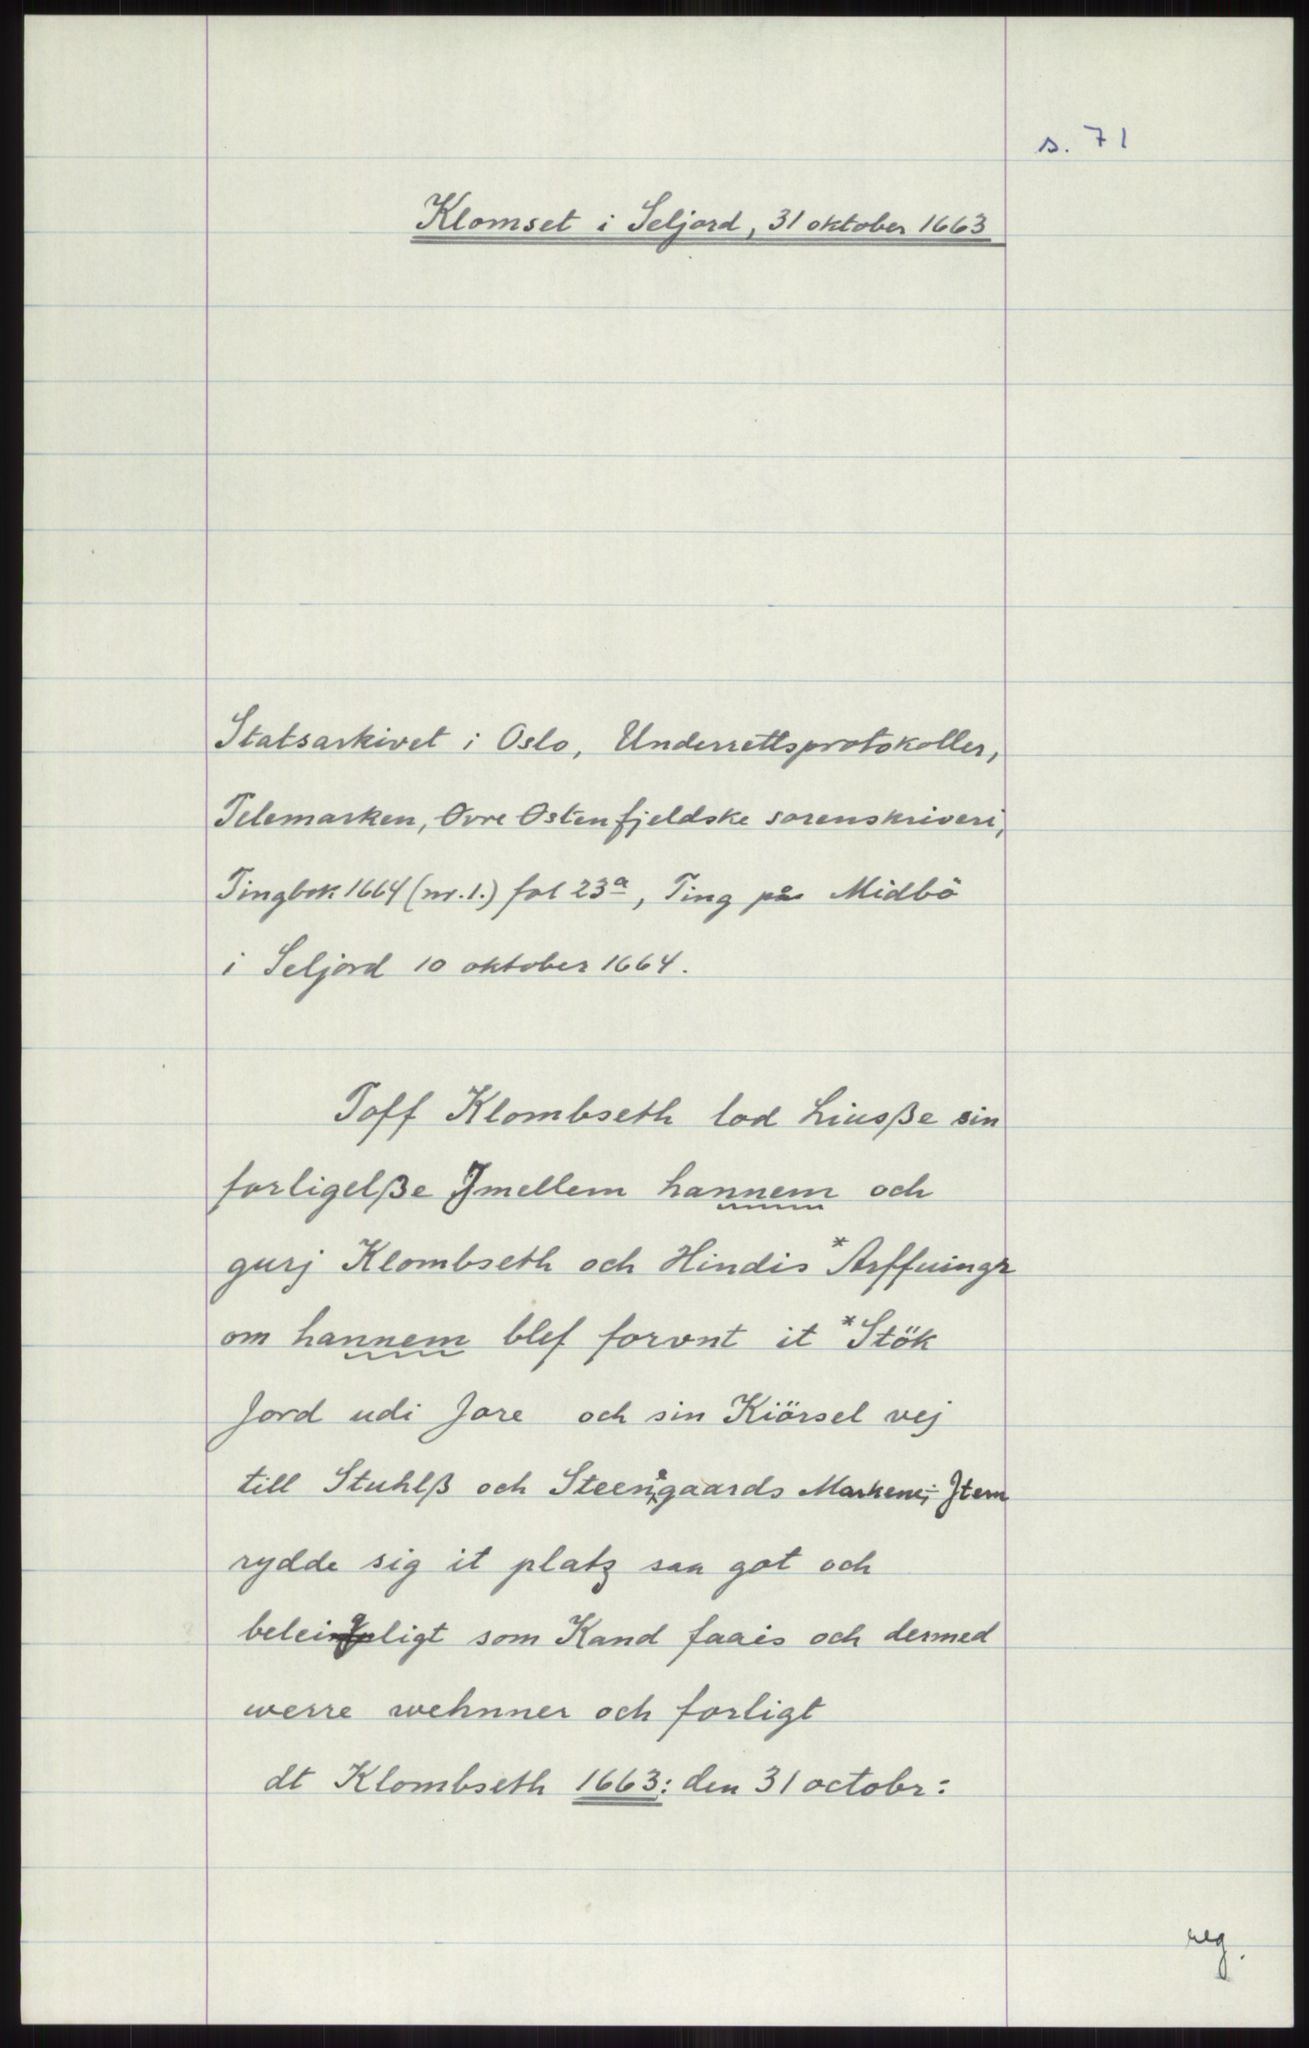 s. 71
Klomset i Seljord, 31 oktober 1663
Statsarkivet i Oslo, Underrettsprotokoller,
Telemarken, Ovre Ostenfjeldske sorenskriveri,
Tingbok 1664 (nr. 1.) fol 23a, Ting på Midbö
i Seljord 10 oktober 1664.
Toff Klombseth lod Liusße sin
forligelße Jmellem hannem och
gurj Klombseth och Hindis *Arffuingr
om hannem blef forvnt it *Stök
Jord udi Jore och sin Kiörsel vej
till Stuhlß och Steensgaards Markene; Jtem
rydde sig it platz saa got och
beleigligt som Kand faais och dermed
werre wehnner och forligt
dt Klombseth 1663: den 31 octobr:
reg.